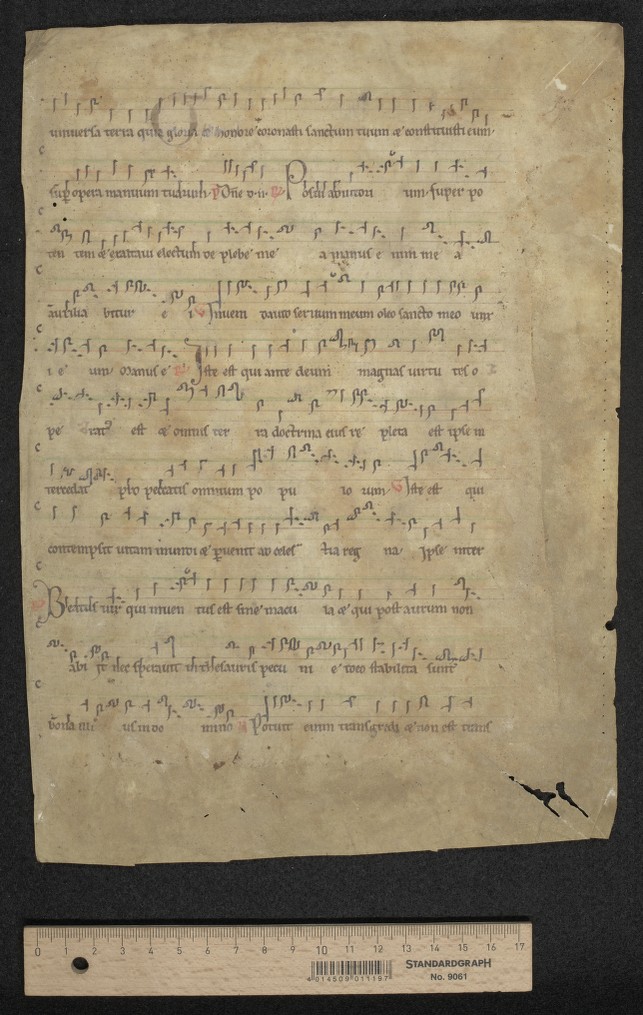 uniuersa terra quia gloria & honore coronasti sanctum tuum & constituisti eum
sup opera manuum tuarum Dne Posui adiutori um super po
ten tem & exaltaui electum de plebe me a manus e nim me a
auxilia bitur e i Inueni dauid seruum meum oleo sancto meo unx
i e um Manus e Iste est qui ante deum magnas uirtu tes o
pe rat est & omnis ter ra doctrina eius re pleta est ipse in
tercedat pro peccatis omnium po pu lo rum Iste est qui
contempsit uitam mundi & puenit ad celes tia reg na Ipse inter
Beatus uir qui inuen tus est sine macu la & qui post aurum non
abi it nec sperauit in thesauris pecu ni e ideo stabilita sunt
bona illi us in do mino Potuit enim transgredi & non est trans
0 1 2 3 4 5 6 7 8 9 10 11 12 13 14 15 16 17
STANDARDGRAPH
4 014509 011197
No. 9061